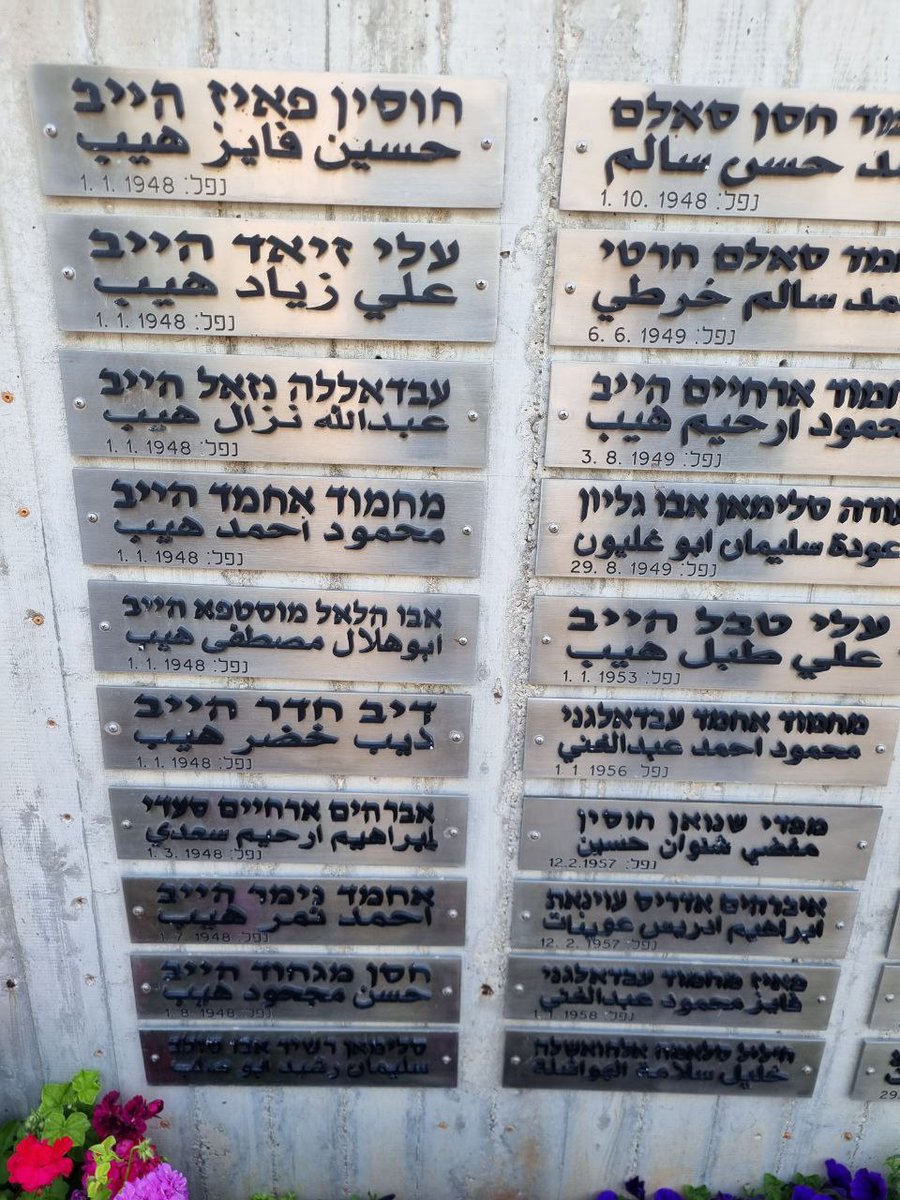 חוסין פאיז הייב
حسين فايز هيب
נפל: 1. 1. 1948
עלי זיאד הייב
علي زياد هيب
נפל: 1. 1. 1948
עבדאללה נזאל הייב
عبدالله نزال هيب
נפל: 1. 1. 1948
מחמוד אחמד הייב
محمود احمد هيب
נפל: 1. 1. 1948
אבו הלאל מוסטפא הייב
ابو هلال مصطفى هيب
נפל: 1. 1. 1948
דיב חדר הייב
ذيب خضر هيب
נפל: 1. 1. 1948
אברהים ארחיים סעדי
ابراهيم ارحيم سعدي
נפל: 1. 3. 1948
אחמד נימר הייב
احمد نمر هيب
נפל: 1. 7. 1948
חסן מגחוד הייב
حسن مجحود هيب
נפל: 1. 8. 1948
סלימאן רשיד אבו
سليمان رشيد ابو
חסן סאלם
حسن سالم
נפל: 1. 10. 1948
סאלם חרטי
سالم خرطي
נפל: 6. 6. 1949
ארחיים הייב
ارحيم هيب
נפל: 3. 8. 1949
סלימאן אבו גליון
عودة سليمان ابو غليون
נפל: 29. 8. 1949
עלי טבל הייב
علي طبل هيب
נפל: 1. 1. 1953
מחמוד אחמד עבדאלגני
محمود احمد عبدالغني
נפל: 1. 1. 1956
מפדי שנואן חוסין
مفضي شنوان حسين
נפל: 12.2.1957
איברהים אדריס עוינאת
ابراهيم ادريس عوينات
נפל: 12. 2. 1957
פאיז מחמוד עבדאלגני
فايز محمود عبدالغني
נפל: 1. 1. 1958
חליל סלאמה אלהואשלה
خليل سلامة الهواشلة